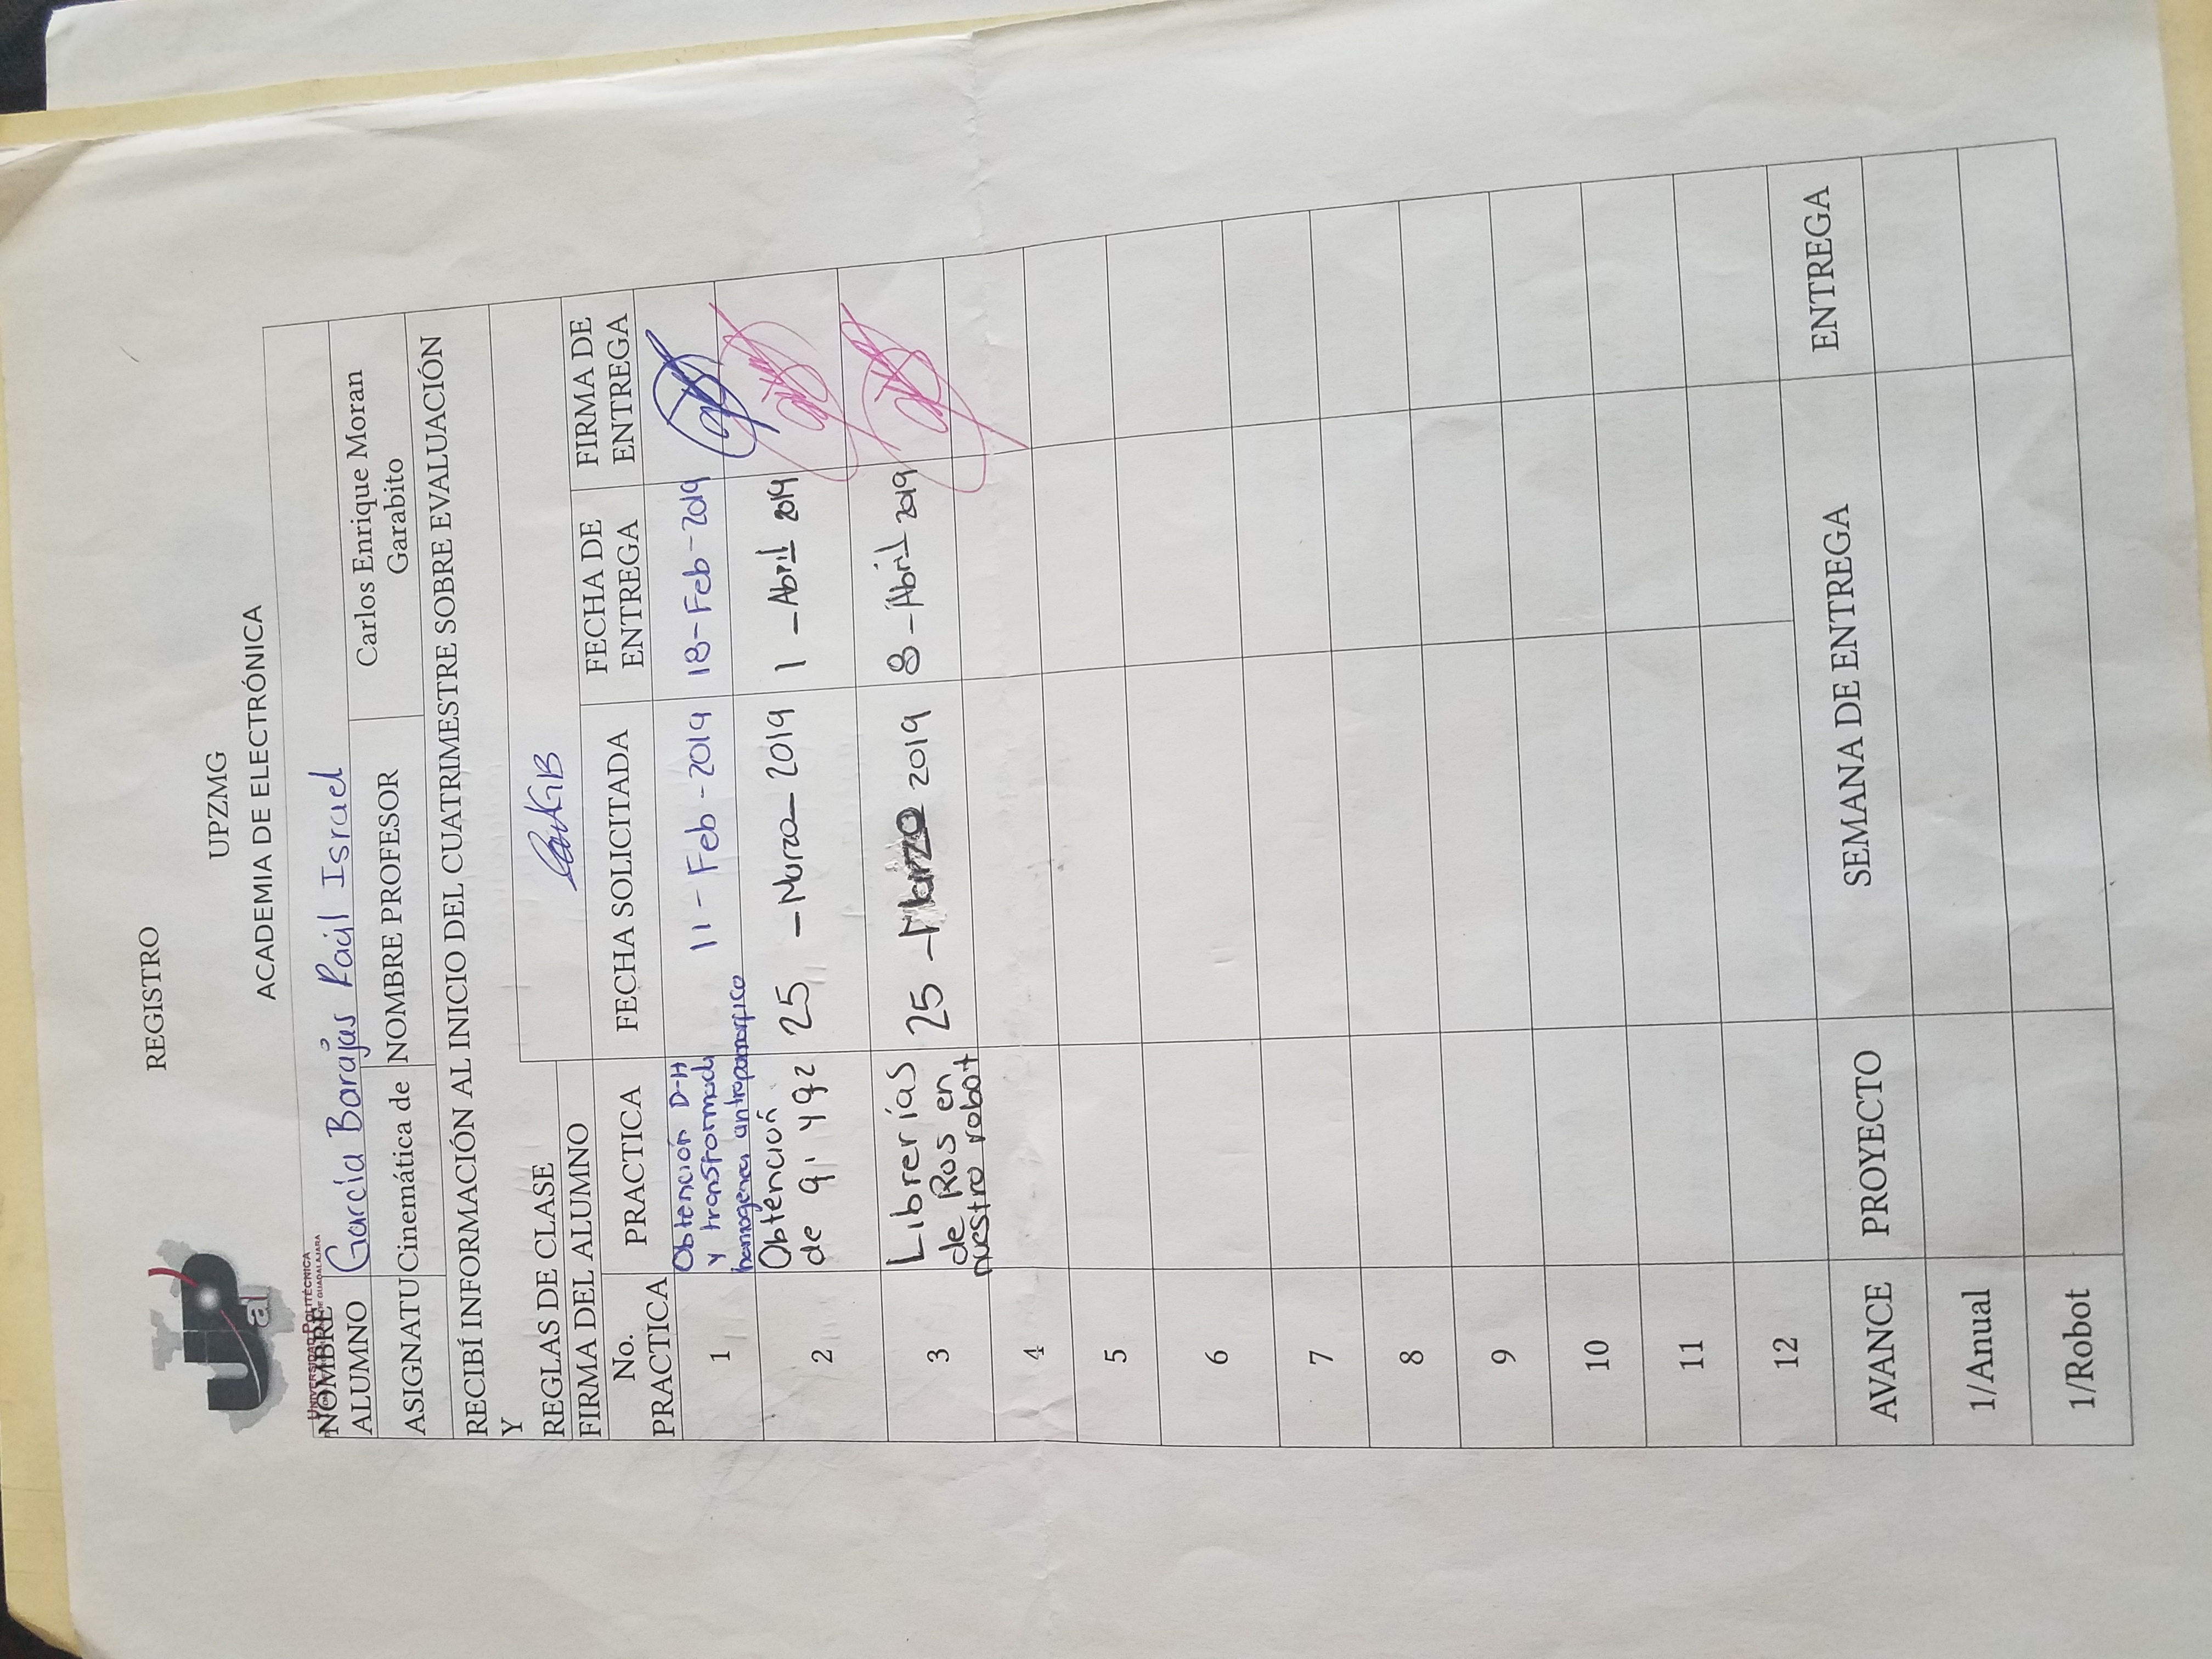 REGISTRO
UPZMG
ACADEMIA DE ELECTRÓNICA
UP
al
UNIVERSIDAD POLITÉCNICA
DE GUADALAJARA
NOMBRE
ALUMNO
García Barajas Raúl Israel
ASIGNATU
Cinemática de
NOMBRE PROFESOR
Carlos Enrique Moran
Garabito
RECIBÍ INFORMACIÓN AL INICIO DEL CUATRIMESTRE SOBRE EVALUACIÓN
Y
REGLAS DE CLASE
FIRMA DEL ALUMNO
No.
PRACTICA
PRACTICA
FECHA SOLICITADA
FECHA DE
ENTREGA
FIRMA DE
ENTREGA
1
Obtención D-H
y transformada
homogenea antropomorfico
11 - Feb - 2019
18 - Feb - 2019
2
Obtención
de q1 y q2
25 - Marzo - 2019
1 - Abril 2019
3
Librerías
de Ros en
nuestro robot
25 - Marzo 2019
8 - Abril 2019
4
5
6
7
8
9
10
11
12
AVANCE
PROYECTO
SEMANA DE ENTREGA
ENTREGA
1/Anual
1/Robot